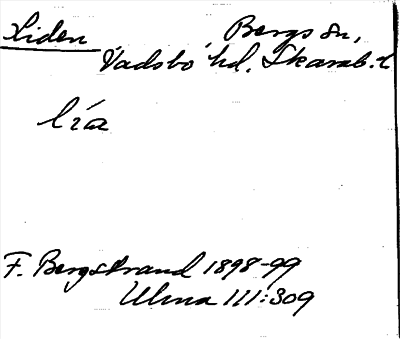 Liden Bergs sn,
Vadsbo hd. Skarab. l
lia
F. Bergstrand 1898-99
Ulma 111:309